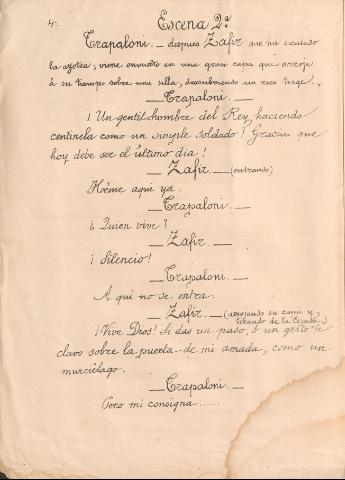 4-
Escena 2ª
Trapaloni. — despues Zafir que ha escalado
la azotea; viene envuelto en una gran capa que arroja
à su tiempo sobre una silla, descubriendo un rico traje.
— Trapaloni. —
¡ Un gentil hombre del Rey, haciendo
centinela como un simple soldado! Gracias que
hoy debe ser el último dia!
— Zafir. — (entrando)
Heme aqui ya.
— Trapaloni. —
¿ Quien vive?
— Zafir. —
¡ Silencio!
— Trapaloni. —
Aqui no se entra.
— Zafir. — (arrojando su capa y
tirando de la espada.)
¡Vive Dios! Si das un paso, ó un grito te
clavo sobre la puerta de mi amada, como un
murciélago.
— Trapaloni. —
Pero mi consigna......